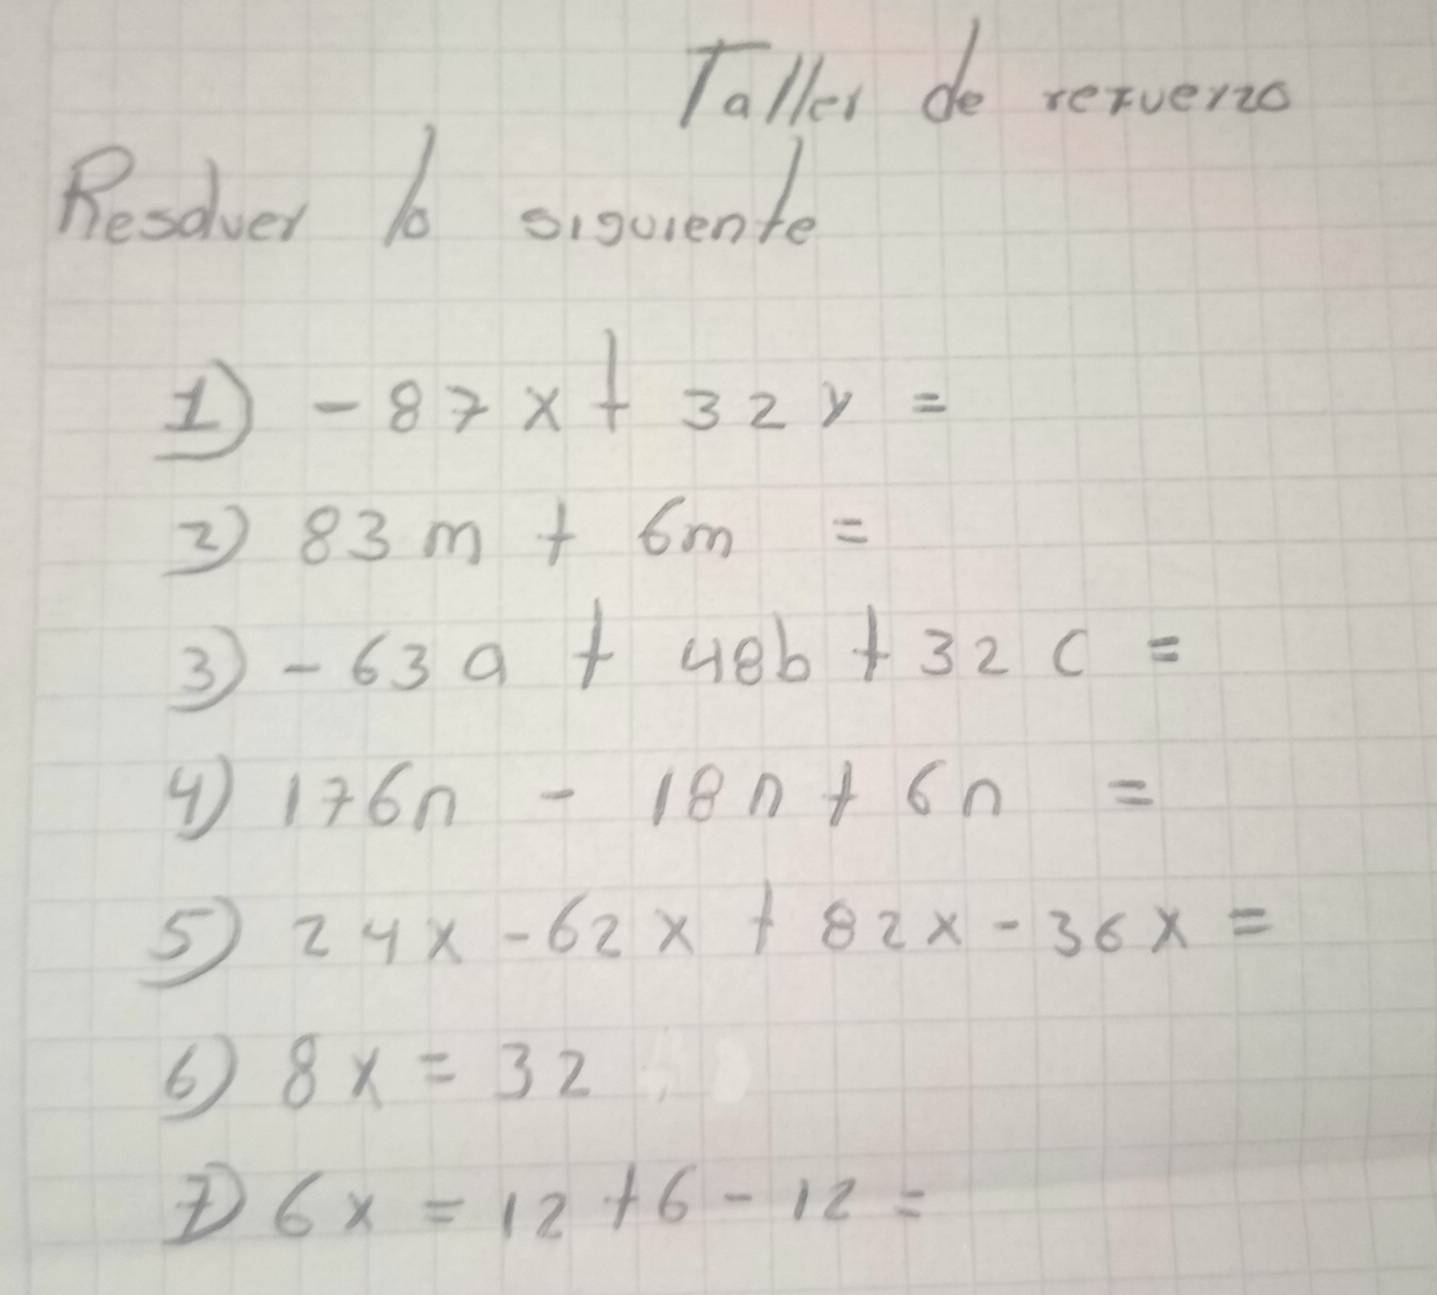 Taller de refuerzo
Resolver lo siguiente
1) -87x + 32y =
2) 83m + 6m =
3) -63a + 48b + 32c =
4) 176n - 18n + 6n =
5) 24x - 62x + 82x - 36x =
6) 8x = 32
7) 6x = 12 + 6 - 12 =